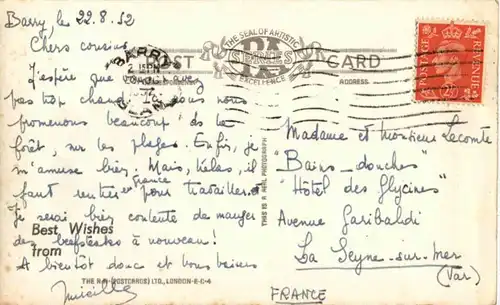 Barry, les 22.8.52
Chers cousins,
J'espère que vous n'avez
pas trop chaud. Nous nous
promenons beaucoup ds la
forêt, sur les plages. Enfin, je
m'amuse bien. Mais, hélas, il
faut rentrer en france pour travailler.
Je serai bien contente de manger
des beefsteaks à nouveau!
Et bientôt donc et bons baisers
Mireille
Best Wishes
from
POST CARD
THE SEAL OF ARTISTIC
SERIES
EXCELLENCE
ADDRESS.
BARRY
POSTAGE REVENUE
THIS IS A REAL PHOTOGRAPH
Madame et Monsieur Lecomte
"Bains-douches"
"Hôtel des Glycines"
Avenue Garibaldi
La Seyne-sur-mer
(Var)
FRANCE
THE R.A. (POSTCARDS) LTD., LONDON-E-C-4